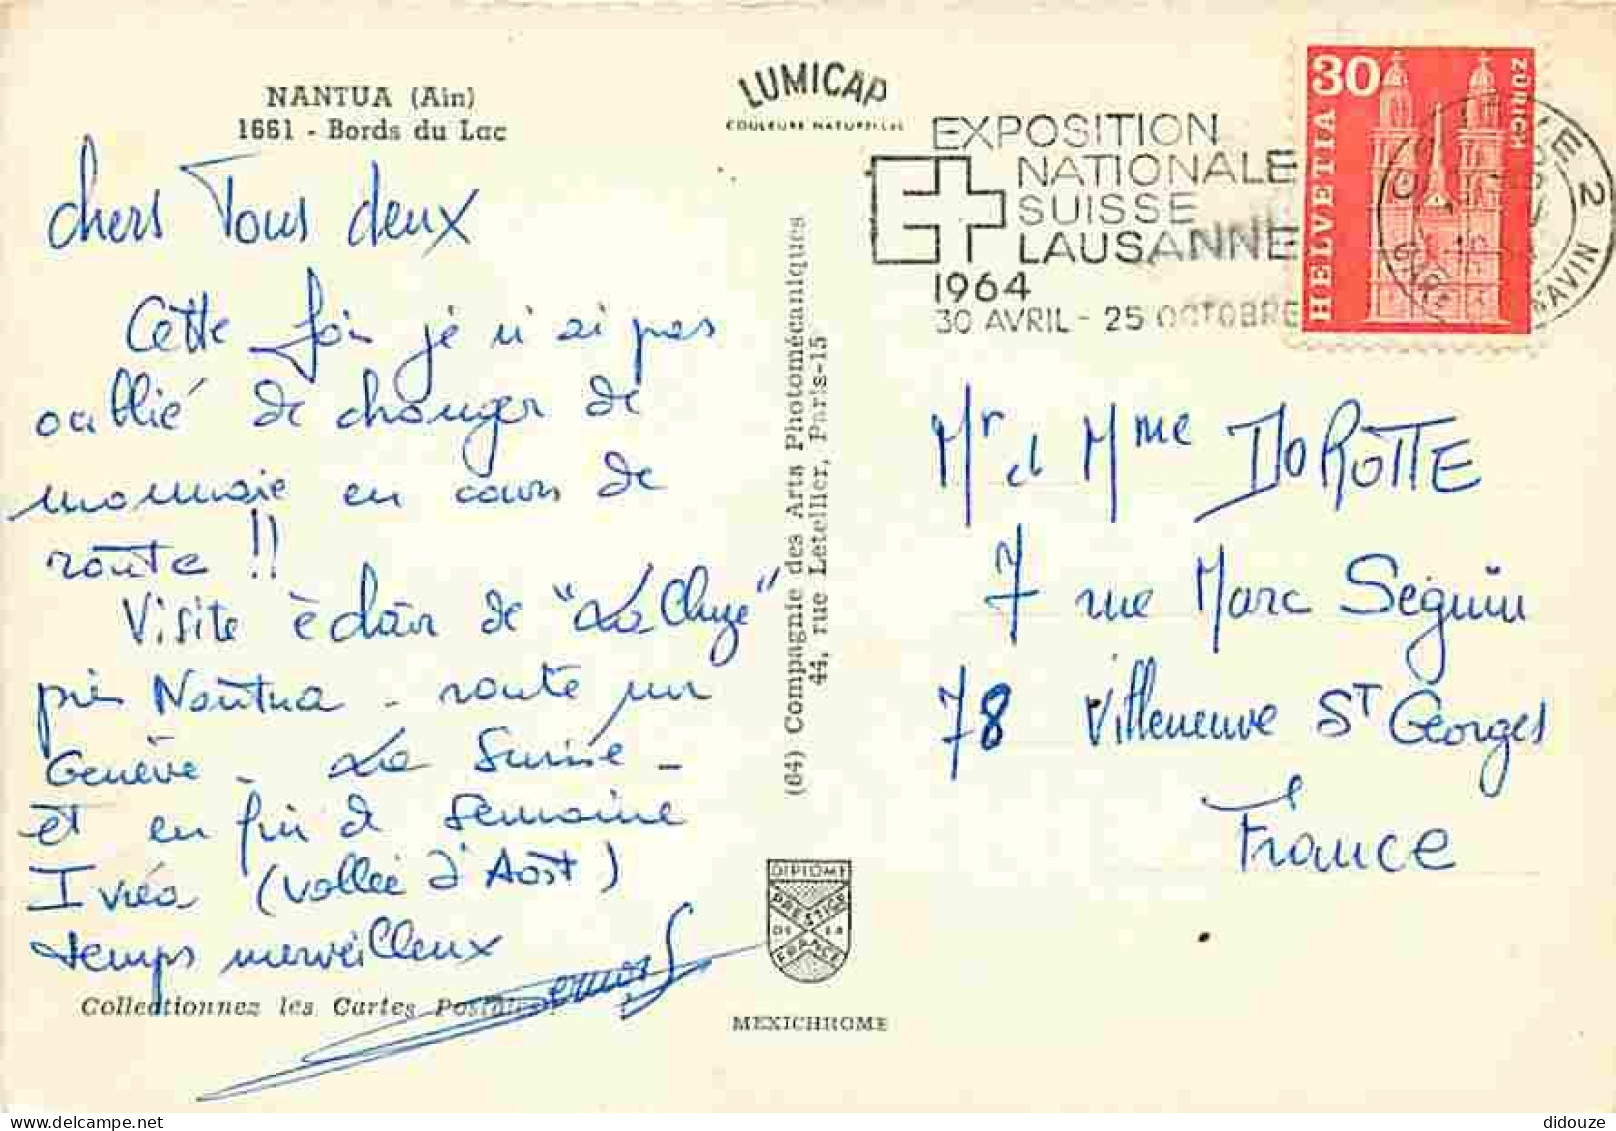 NANTUA (Ain)
1661 - Bords du Lac
chers Tous deux
Cette fois je n'ai pas
oublié de changer de
monnaie en cours de
route !!
Visite éclair de "La Cluze"
près Nantua - route sur
Genève - La Suisse -
et en fin de semaine
Ivréa (vallée d'Aost)
temps merveilleux
Collectionnez les Cartes Postales !
LUMICAP
COULEURS NATURELLES
(64) Compagnie des Arts Photomécaniques
44, rue Letellier, Paris-15
DIPLOME
PRESTIGE
DE LA
FRANCE
MEXICHROME
EXPOSITION
NATIONALE
SUISSE
LAUSANNE
1964
30 AVRIL - 25 OCTOBRE
30
HELVETIA
ZÜRICH
Mr et Mme DOROTTE
7 rue Marc Séguin
78 Villeneuve ST Georges
France
didouze